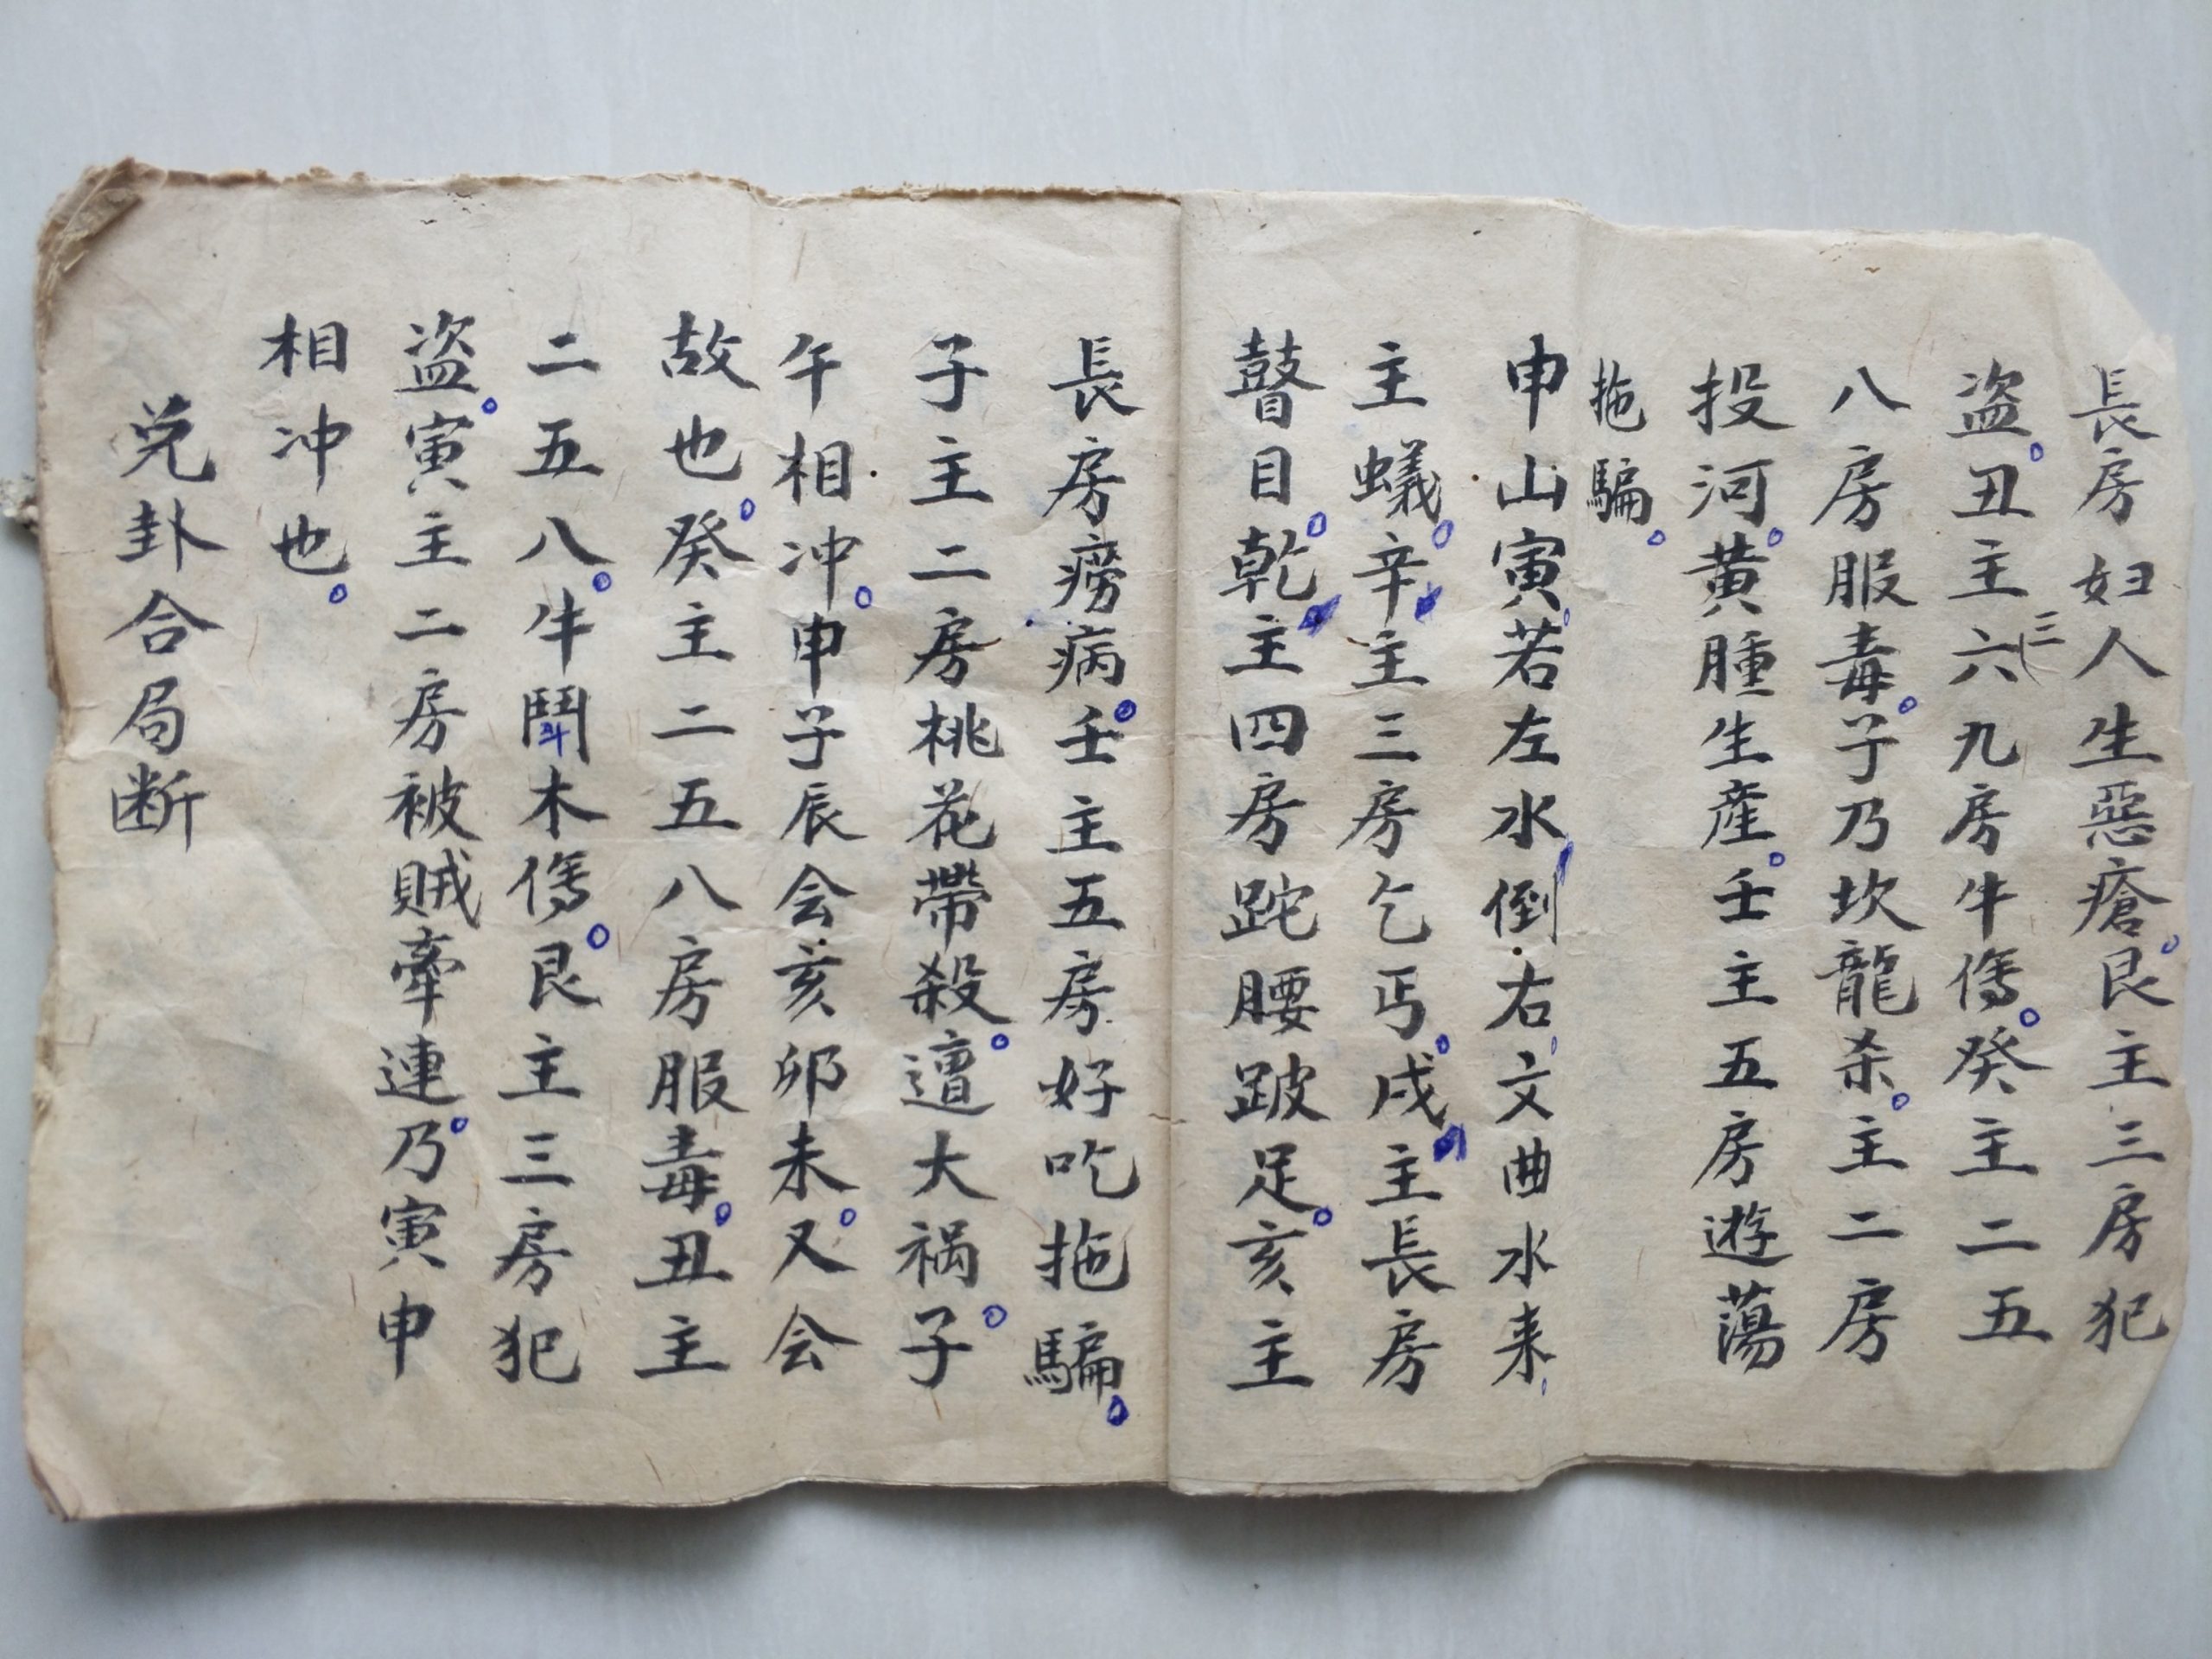 長房妇人生惡瘡。艮主三房犯
盗。丑主三六九房牛傷。癸主二五
八房服毒。子乃坎龍杀。主二房
投河。黄腫生産。壬主五房遊蕩
拖騙。
申山寅若左水倒右文曲水来
主蟻。辛主三房乞丐。戌主長房
瞽目。乾主四房跎腰跛足。亥主
長房癆病。壬主五房好吃拖騙。
子主二房桃花帶殺。遭大禍。子
午相冲。申子辰会亥卯未。又会
故也。癸主二五八房服毒。丑主
二五八。牛鬪斗木傷。艮主三房犯
盗。寅主二房被賊牽連。乃寅申
相冲也。
兑卦合局断